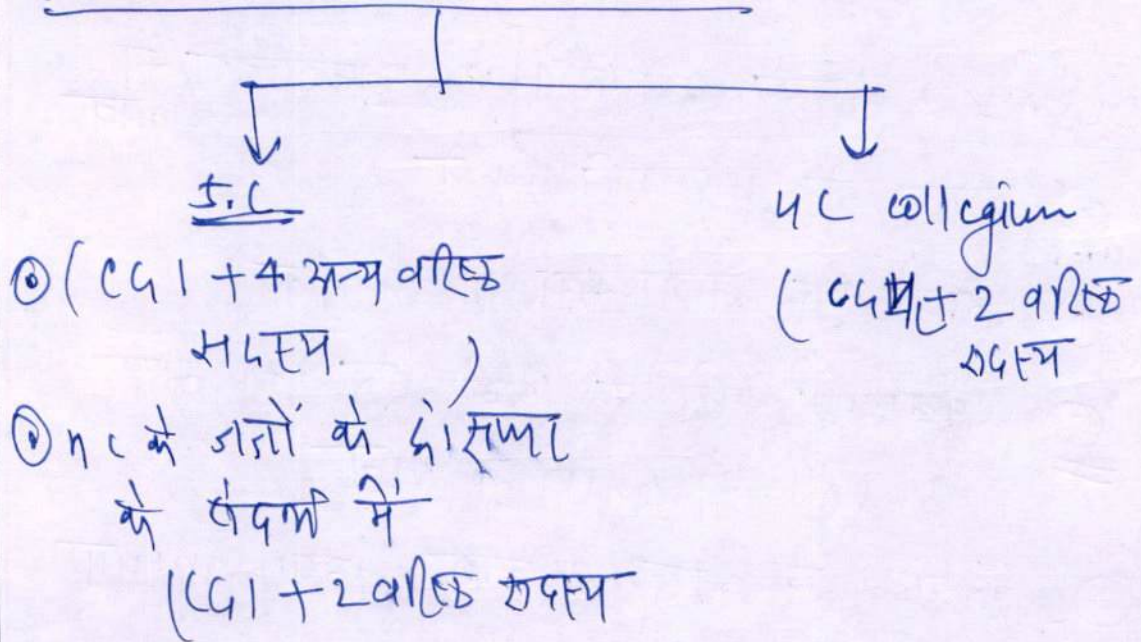 S.C
(CGI + 4 अन्य वरिष्ठ
सदस्य )
HC के जजों के
के संदर्भ में
(CGI + 2 वरिष्ठ सदस्य
HC collegium
( + 2 वरिष्ठ
सदस्य